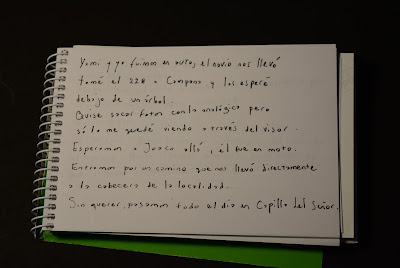 Yami y yo fuimos en auto, el novio nos llevó
tomé el 228 a Campana y los esperé
debajo de un árbol.
Quise sacar fotos con la analógica pero
sólo me quedé viendo a través del visor.
Esperamos a Juaco allá, él fue en moto.
Entramos por un camino que nos llevó directamente
a la cabecera de la localidad.
Sin querer, pasamos todo el día en Capilla del Señor.